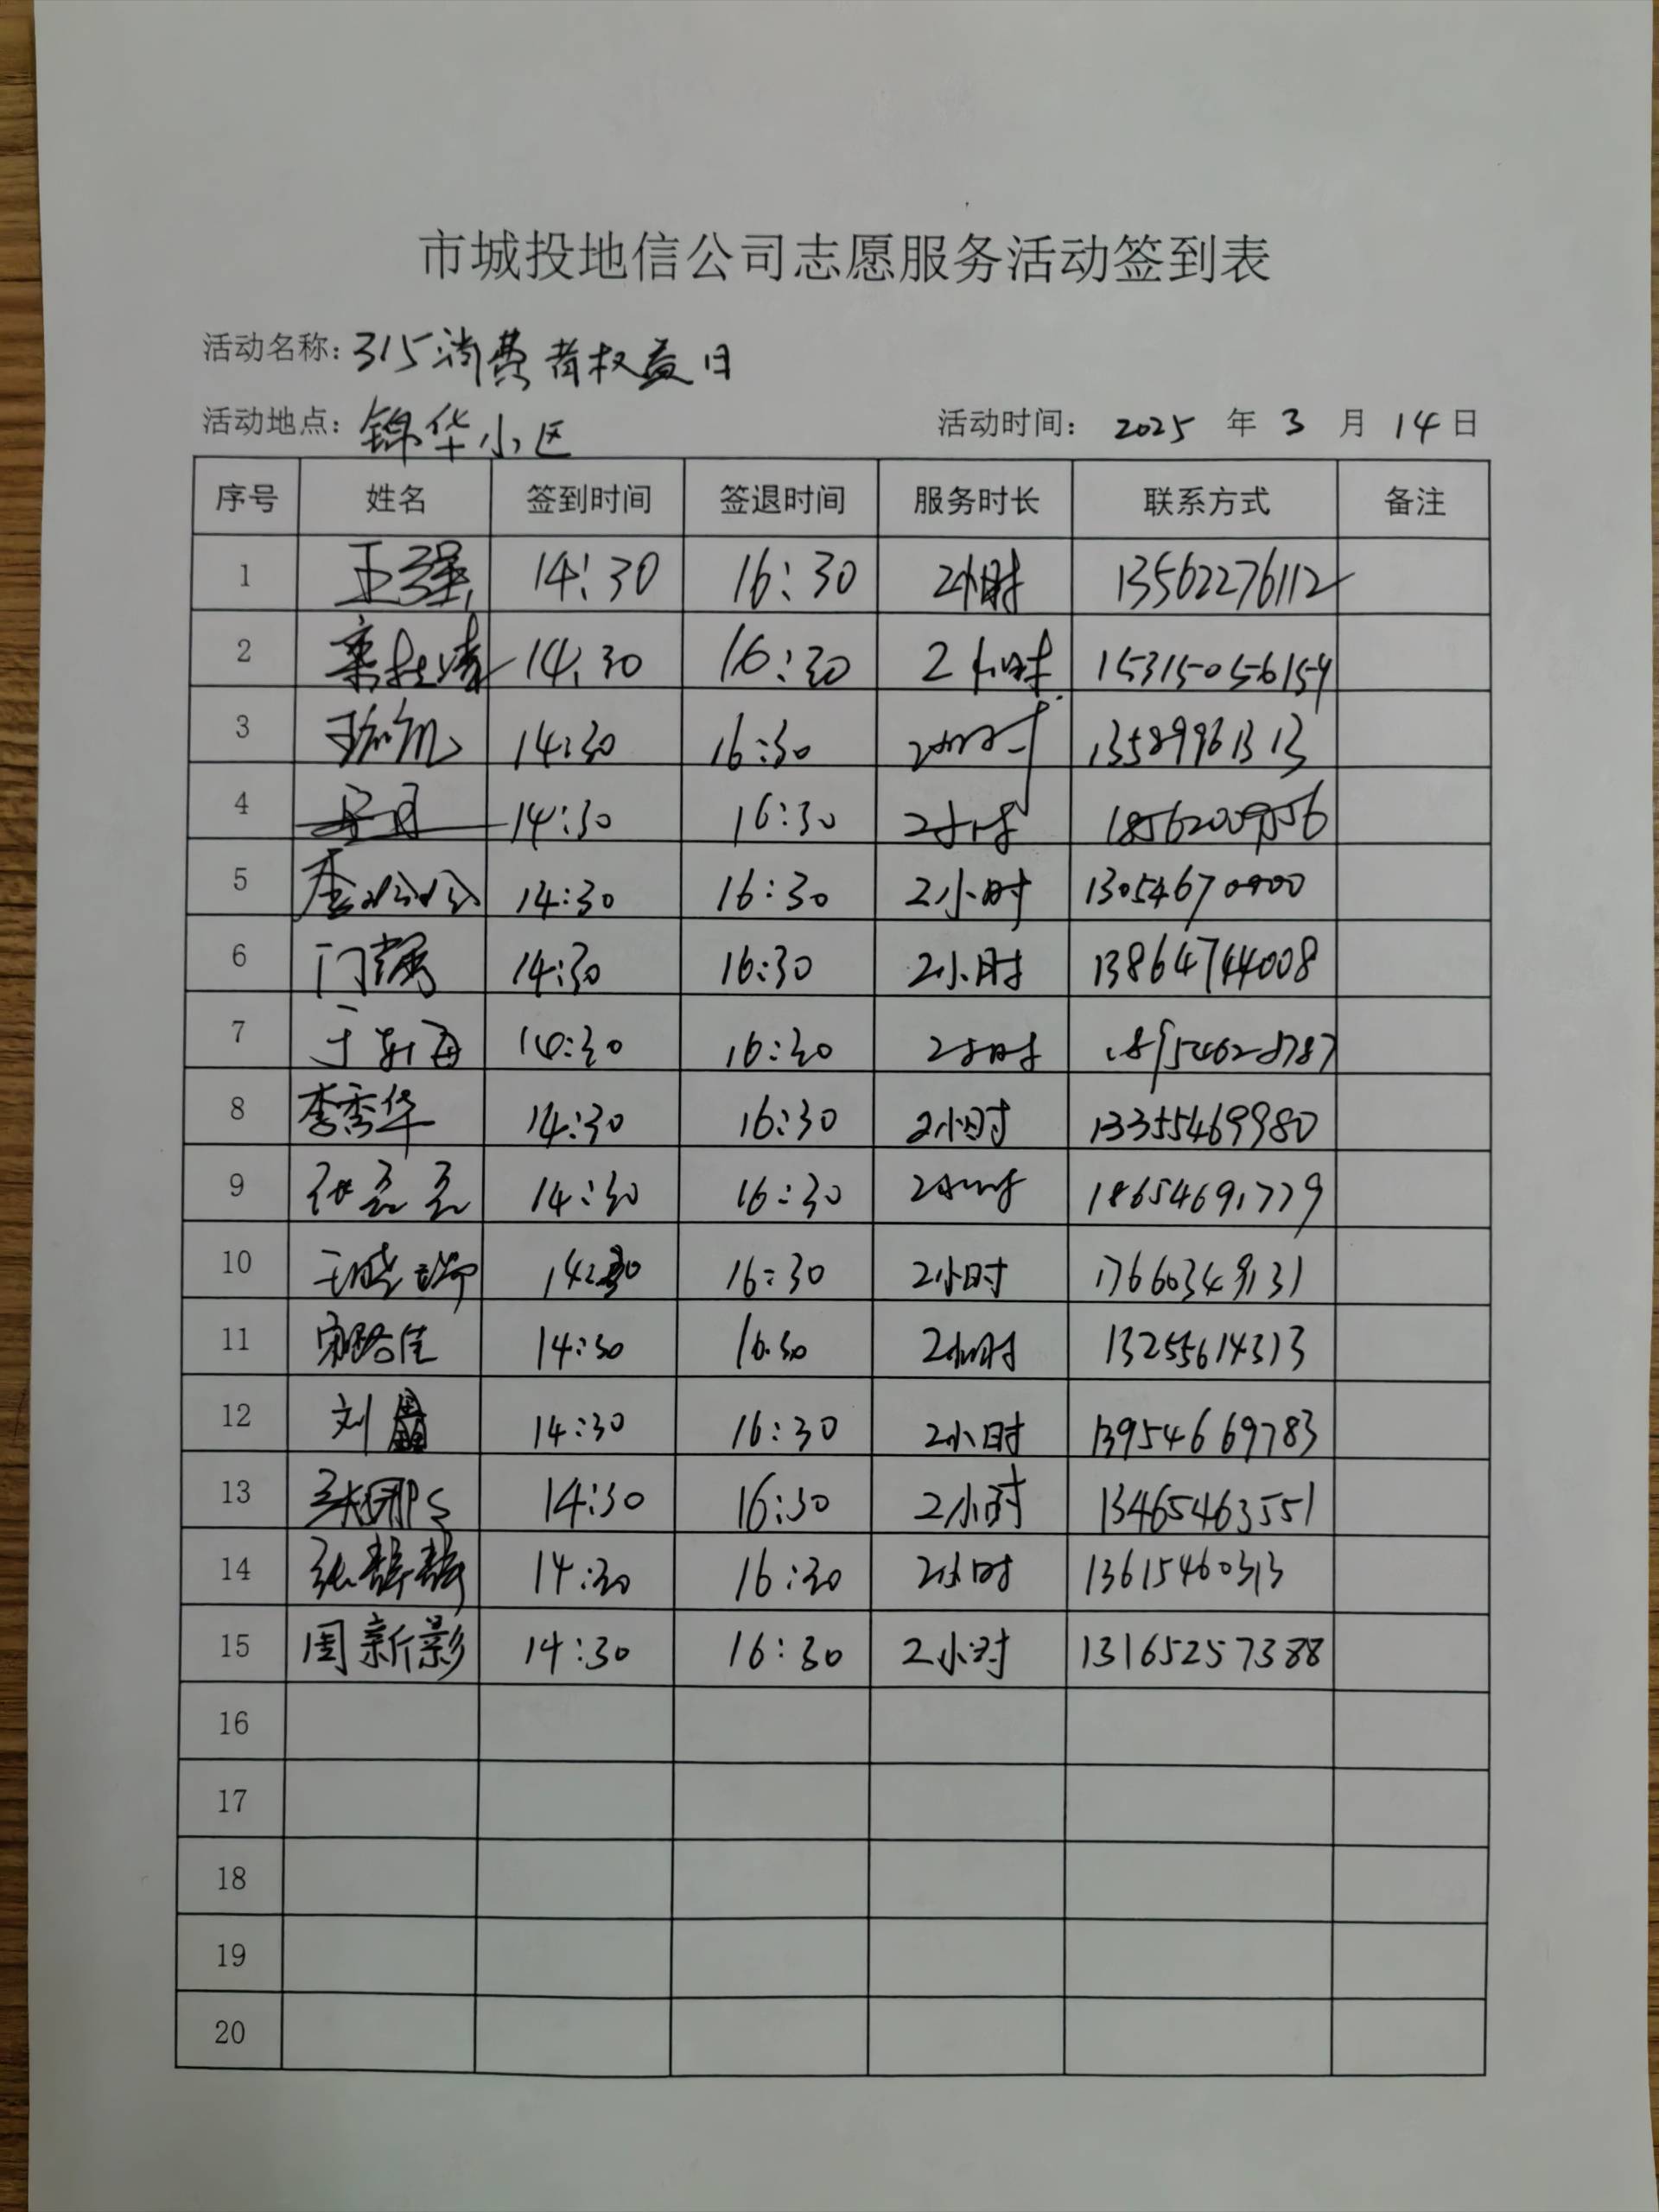 市城投地信公司志愿服务活动签到表
活动名称: 315消费者权益日
活动地点: 锦华小区 活动时间: 2025 年 3 月 14 日
序号 姓名 签到时间 签退时间 服务时长 联系方式 备注
1 王强 14:30 16:30 2小时 13562276112
2 14:30 16:30 2小时 15315056159
3 14:30 16:30 2小时 13589961313
4 14:30 16:30 2小时
5 李盼盼 14:30 16:30 2小时
6 门强 14:30 16:30 2小时 13864744008
7 于新海 14:30 16:30 2小时 18954628787
8 李秀华 14:30 16:30 2小时 13355469980
9 张磊磊 14:30 16:30 2小时 18654691779
10 王晓瑞 14:30 16:30 2小时 17660349131
11 宋路佳 14:30 16:30 2小时 13255614313
12 刘 14:30 16:30 2小时 13954669783
13 张娜 14:30 16:30 2小时 13465463551
14 张静静 14:30 16:30 2小时 13615460313
15 周新影 14:30 16:30 2小时 13165257388
16
17
18
19
20